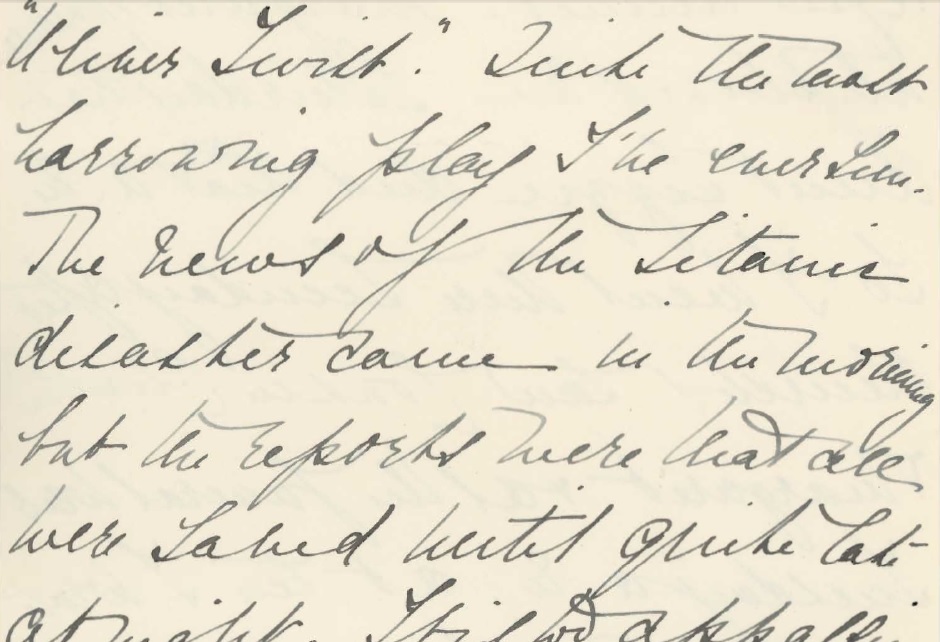 "Oliver Twist." Quite the most
harrowing play I've ever seen.
The news of the Titanic
disaster came in the morning
but the reports were that all
were saved until quite late
at night. It is too appalling